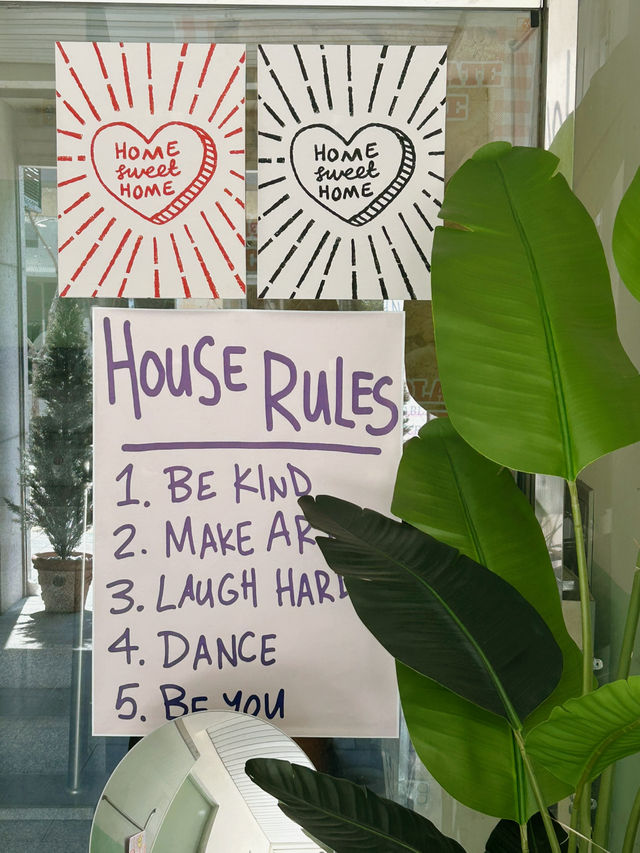 HOME
sweet
HOME
HOME
sweet
HOME
HOUSE RULES
1. BE KIND
2. MAKE AR
3. LAUGH HARD
4. DANCE
5. BE YOU